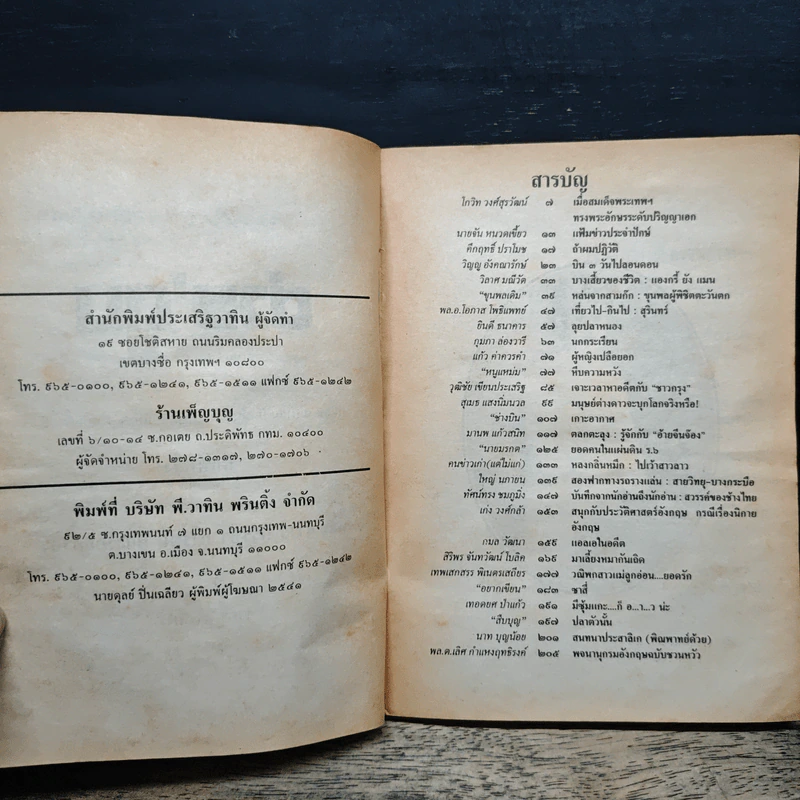 สำนักพิมพ์ประเสริฐวาทิน ผู้จัดทำ
๑๙ ซอยโชติสหาย ถนนริมคลองประปา
เขตบางซื่อ กรุงเทพฯ ๑๐๘๐๐
โทร. ๙๖๕-๐๑๐๐, ๙๖๕-๑๒๔๑, ๙๖๕-๑๕๑๑ แฟกซ์ ๙๖๕-๑๒๔๒
ร้านเพ็ญบุญ
เลขที่ ๖/๑๐-๑๔ ซ.กอเตย ถ.ประดิพัทธ กทม. ๑๐๔๐๐
ผู้จัดจำหน่าย โทร. ๒๗๘-๑๓๑๗, ๒๗๐-๑๗๐๖
พิมพ์ที่ บริษัท พี.วาทิน พรินติ้ง จำกัด
๙๒/๕ ซ.กรุงเทพนนท์ ๗ แยก ๑ ถนนกรุงเทพ-นนทบุรี
ต.บางเขน อ.เมือง จ.นนทบุรี ๑๑๐๐๐
โทร. ๙๖๕-๐๑๐๐, ๙๖๕-๑๒๔๑, ๙๖๕-๑๕๑๑ แฟกซ์ ๙๖๕-๑๒๔๒
นายดุลย์ ปิ่นเฉลียว ผู้พิมพ์ผู้โฆษณา ๒๕๔๑
สารบัญ
โกวิท วงศ์สุรวัฒน์ ๗ เมื่อสมเด็จพระเทพฯ
ทรงพระอักษรระดับปริญญาเอก
นายจัน หนวดเขี้ยว ๑๓ แฟ้มข่าวประจำปักษ์
คึกฤทธิ์ ปราโมช ๑๗ ถ้าผมปฏิวัติ
วิญญู อังคณารักษ์ ๒๓ บิน ๓ วันไปลอนดอน
วิลาศ มณีวัต ๓๓ บางเสี้ยวของชีวิต : แองกรี้ ยัง แมน
"ขุนพลเดิม" ๓๙ หล่นจากสามก๊ก : ขุนพลผู้พิชิตตะวันตก
พล.อ.โอภาส โพธิแพทย์ ๔๗ เที่ยวไป-กินไป : สุรินทร์
ยินดี ธนาคาร ๕๗ ลุยปลาหนอง
กุมภา ล่องวารี ๖๓ นกกระเรียน
แก้ว ค่าควรคำ ๗๑ ผู้หญิงเปลือยอก
"หนูแหม่ม" ๗๗ หีบความหวัง
วุฒิชัย เขียนประเสริฐ ๘๕ เจาะเวลาหาอดีตกับ "ชาวกรุง"
สุเมธ แสงนิ่มนวล ๙๙ มนุษย์ต่างดาวจะบุกโลกจริงหรือ!
"ช่างบิน" ๑๐๗ เกาะอากาศ
มานพ แก้วสนิท ๑๑๗ ตลกตะลุง : รู้จักกับ "อ้ายจีนจ้อง"
"นายมรกต" ๑๒๕ ยอดคนในแผ่นดิน ร.๖
คนข่าวเก่า(แต่ไม่แก่) ๑๓๓ หลงกลิ่นหมึก : ไปเว้าสาวลาว
ใหญ่ นภายน ๑๓๙ สองฟากทางรถรางแล่น : สายวิทยุ-บางกระบือ
ทัศน์ทรง ชมภูมิ่ง ๑๔๗ บันทึกจากนักอ่านถึงนักอ่าน : สวรรค์ของช้างไทย
เก่ง วงศ์กล้า ๑๕๓ สนุกกับประวัติศาสตร์อังกฤษ กรณีเรื่องนิกาย
อังกฤษ
กมล วัฒนา ๑๕๙ แอลเอในอดีต
สิริพร จันทวัฒน์ ไบลิค ๑๖๙ มาเลี้ยงหมากันเถิด
เทพเสกสรร พิเนตรเสถียร ๑๗๗ วณิพกสาวแม่ลูกอ่อน...ยอดรัก
"อยากเขียน" ๑๘๓ ซาสี่
เทอดยศ ป่าแก้ว ๑๙๑ มีซุ้มแกะ....ก็ อ...า...ว น่ะ
"สืบบุญ" ๑๙๗ ปลาตัวนั้น
นาท บุญน้อย ๒๐๑ สนทนาประสาลิเก (พิณพาทย์ด้วย)
พล.ต.เลิศ กำแหงฤทธิรงค์ ๒๐๕ พจนานุกรมอังกฤษฉบับชวนหวัว